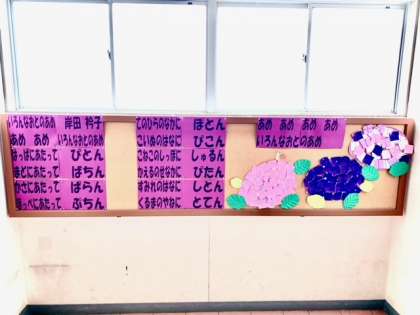 いろんなおとのあめ 岸田 衿子
あめ あめ いろんなおとのあめ
はっぱにあたって ぴとん
まどにあたって ぱちん
かさにあたって ぱらん
ほっぺにあたって ぷちん
てのひらのなかに ぽとん
こいぬのはなに ぴこん
こねこのしっぽに しゅるん
かえるのせなかに ぴたん
すみれのはなに しとん
くるまのやねに とてん
あめ あめ あめ あめ
いろんなおとのあめ